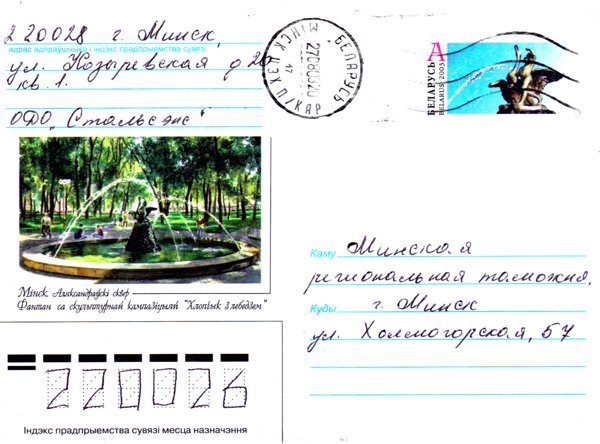 220028 г. Минск,
адрас адпраўшчыка і індэкс прадпрыемства сувязі
ул. Козыревская д. 20
кв. 1.
ОДО „Стальсэис"
МІНСК БЕЛАРУСЬ
27080320
17
А
БЕЛАРУСЬ
BELARUS 2003
Мінск. Аляксандраўскі сквер
Фантан са скульптурнай кампазіцыяй "Хлопчык з лебедзем"
Каму Минская
региональная таможня.
Куды г. Минск
ул. Холмогорская, 57
220026
Індэкс прадпрыемства сувязі месца назначэння